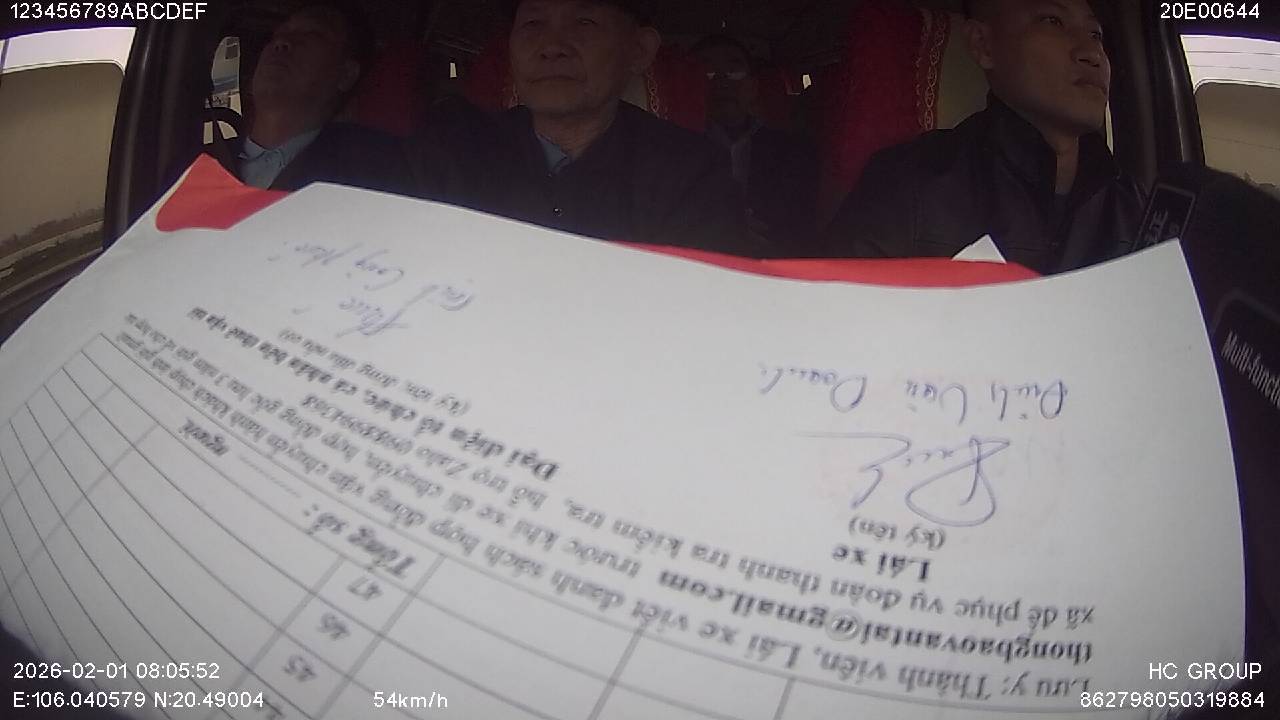 123456789ABCDEF
20E00644
Lưu ý: Thành viên, Lái xe viết danh sách hợp đồng vận chuyển hành khách
thongbaovantai@gmail.com trước khi xe di chuyển, hợp đồng gốc lưu 3 năm
xã để phục vụ đoàn thanh tra kiểm tra, hỗ trợ Zalo
Lái xe
(ký tên)
Đinh Văn Doanh
Đại diện tổ chức, cá nhân bên thuê vận tải
(ký tên, đóng dấu nếu có)
Tổng số:
người
47
46
45
Multi-functi
2026-02-01 08:05:52
E:106.040579 N:20.49004
54km/h
HC GROUP
862798050319884